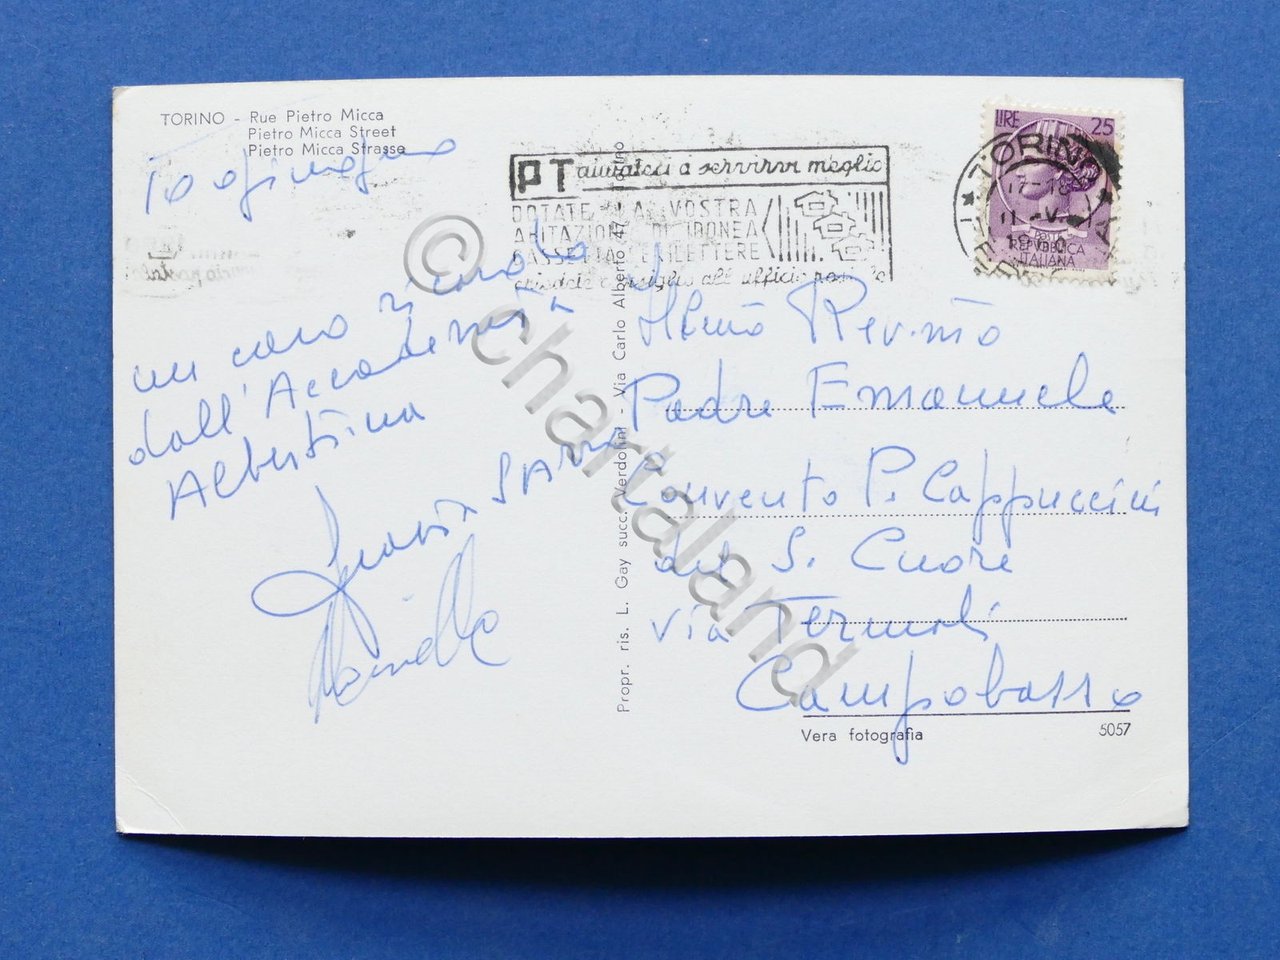 TORINO - Rue Pietro Micca
Pietro Micca Street
Pietro Micca Strasse
To
un caro ricordo
dall'Accademia
Albertina
PT aiutateci a servirvi meglio
DOTATE LA VOSTRA
ABITAZIONE DI IDONEA
CASSETTA PER LETTERE
chiedete consiglio all'ufficio postale
TORINO
17-18
LIRE 25
POSTE
REPVBBLICA
ITALIANA
Propr. ris. L. Gay succ. Verdolini - Via Carlo Alberto 47 - Torino
Ill.mo Rev.mo
Padre Emanuele
Convento P. Cappuccini
del S. Cuore
via Termoli
Campobasso
Vera fotografia
5057
© chartaland